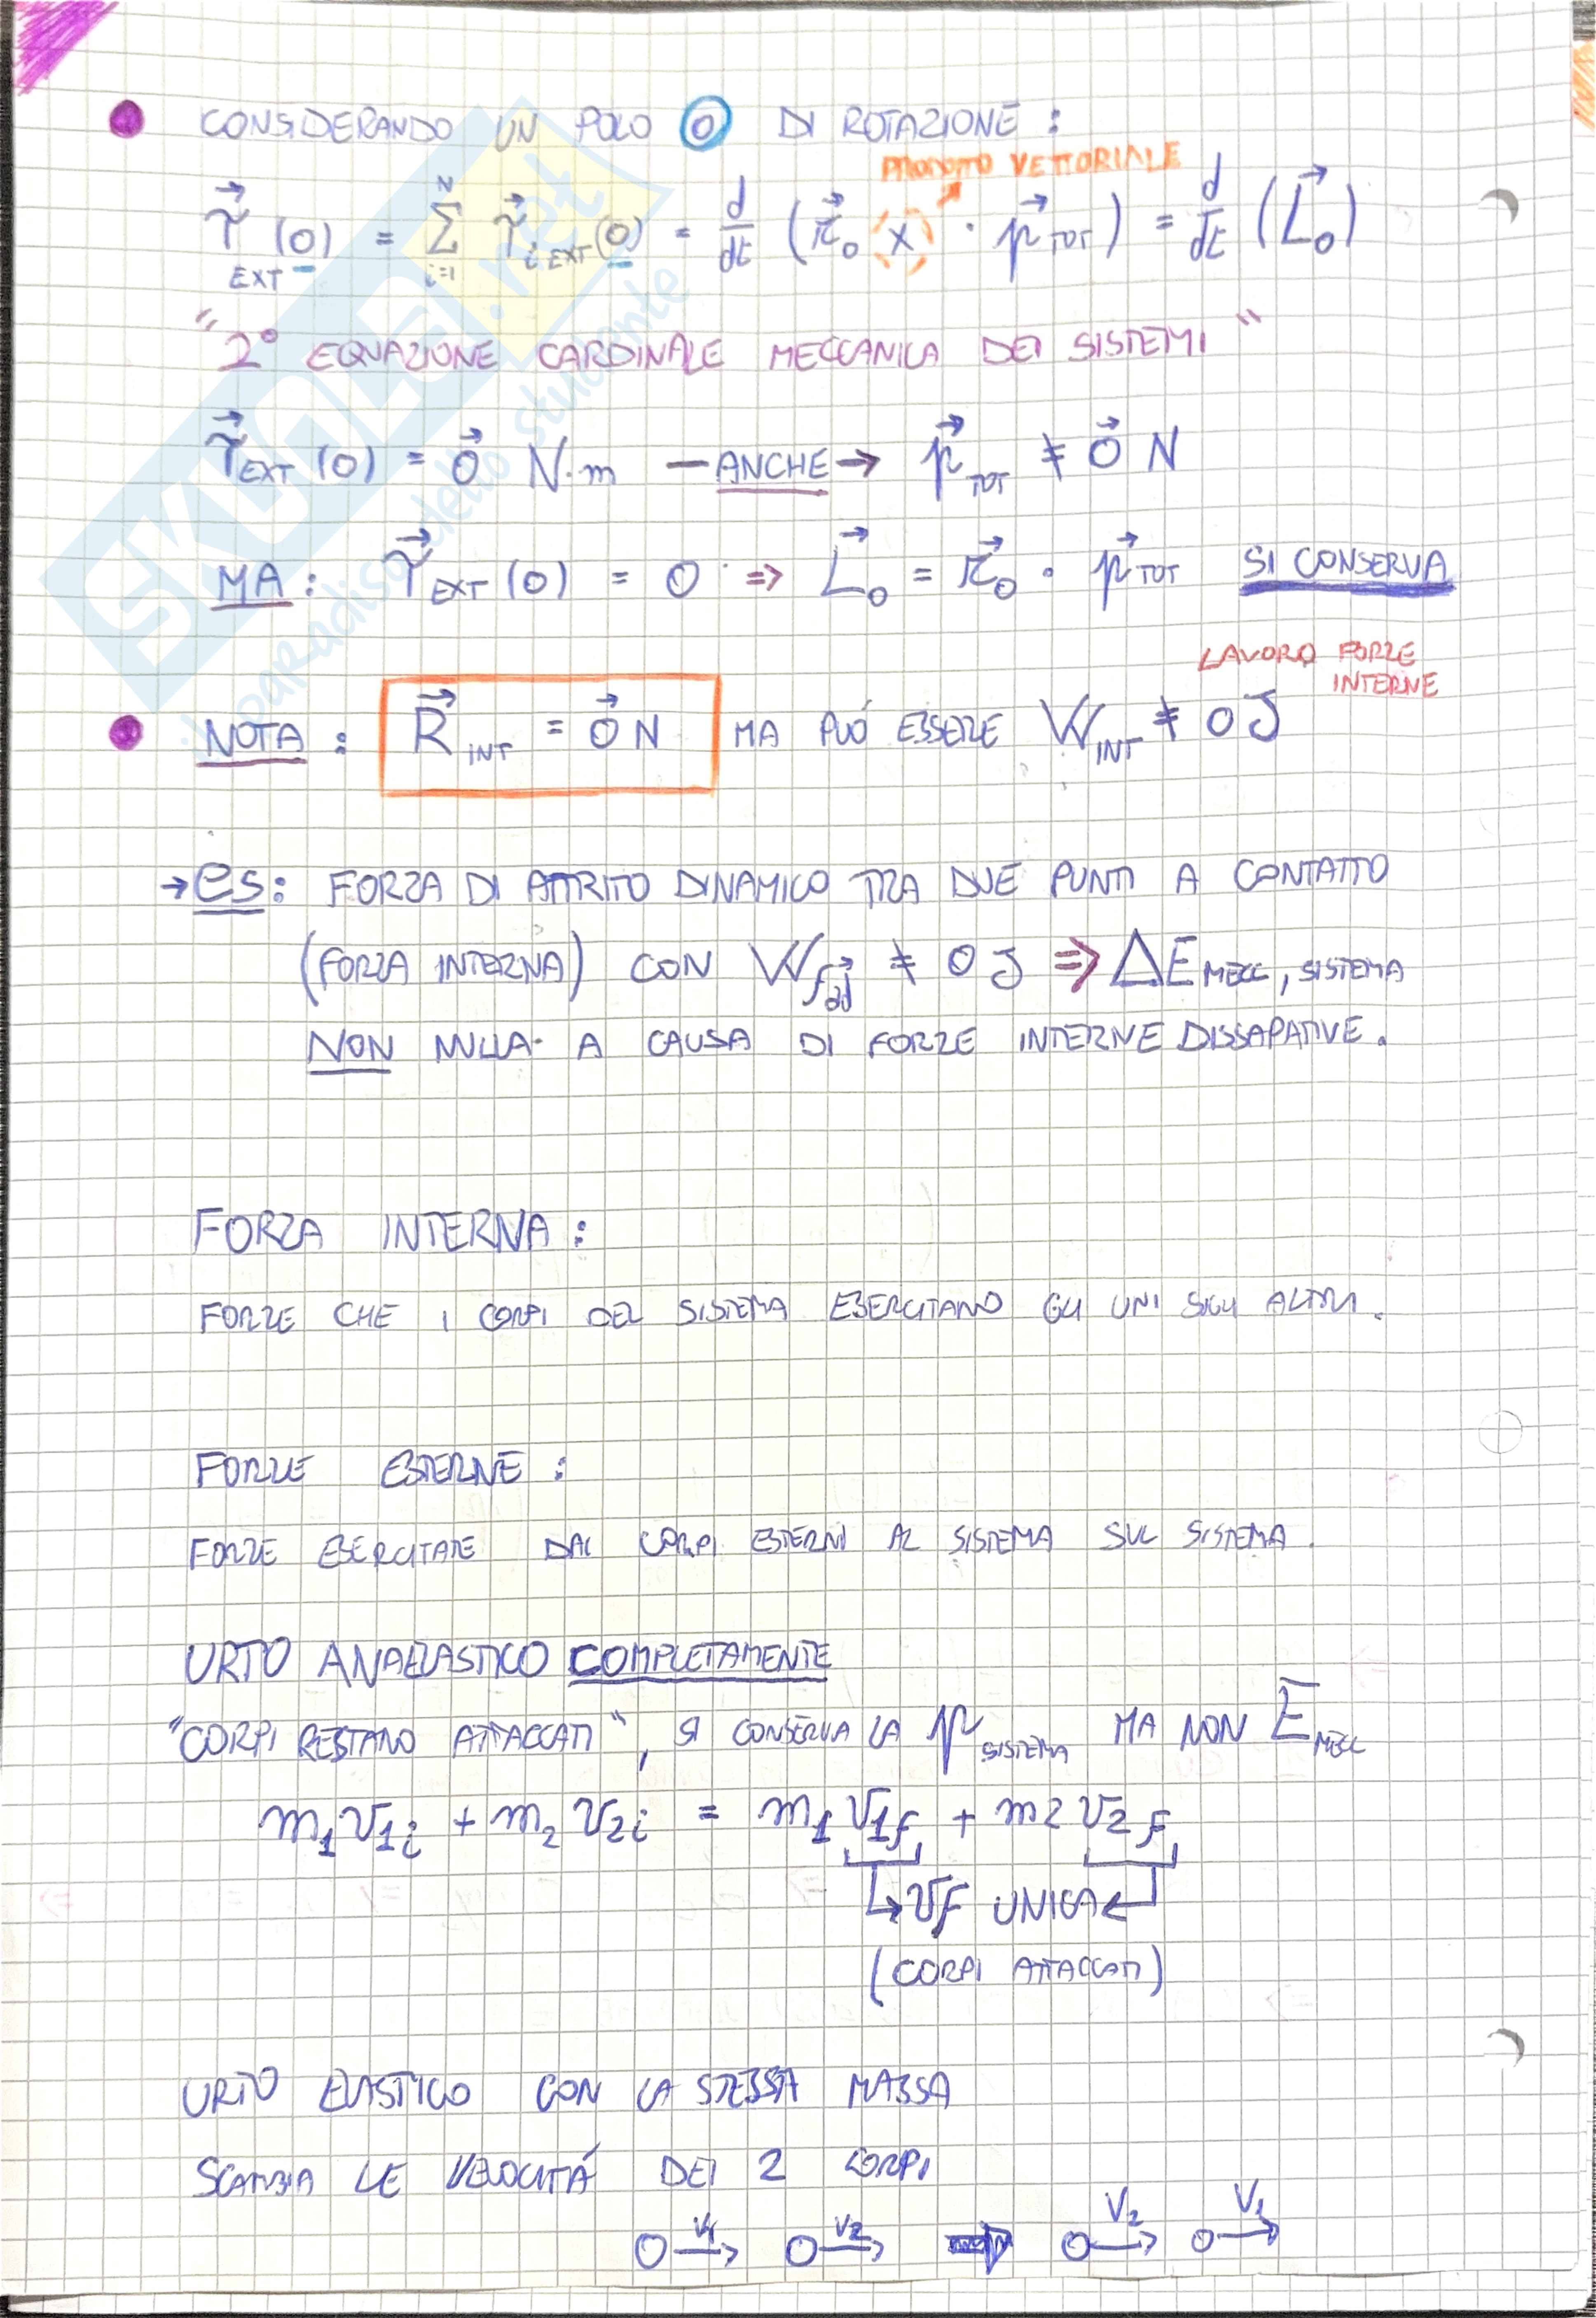 CONSIDERANDO UN POLO O DI ROTAZIONE :
PRODOTTO VETTORIALE
τ⃗ EXT (O) = Σ i=1 N τ⃗ i EXT (O) = d/dt (r⃗o × · p⃗ TOT) = d/dt (L⃗o)
"2° EQUAZIONE CARDINALE MECCANICA DEI SISTEMI"
τ⃗ EXT (O) = 0⃗ N·m — ANCHE → p⃗ TOT ≠ 0⃗ N
MA : τ⃗ EXT (O) = 0 ⇒ L⃗o = r⃗o · p⃗ TOT SI CONSERVA
LAVORO FORZE
INTERNE
NOTA : R⃗ INT = 0⃗ N MA PUÓ ESSERE W INT ≠ 0 J
→ es: FORZA DI ATTRITO DINAMICO TRA DUE PUNTI A CONTATTO
(FORZA INTERNA) CON W f⃗ad ≠ 0 J ⇒ ΔE MECC, SISTEMA
NON NULLA A CAUSA DI FORZE INTERNE DISSAPATIVE.
FORZA INTERNA :
FORZE CHE I CORPI DEL SISTEMA ESERCITANO GLI UNI SUGLI ALTRI.
FORZE ESTERNE :
FORZE ESERCITATE DAI CORPI ESTERNI AL SISTEMA SUL SISTEMA.
URTO ANAELASTICO COMPLETAMENTE
"CORPI RESTANO ATTACCATI", SI CONSERVA LA p SISTEMA MA NON E MECC
m1 v1i + m2 v2i = m1 v1f + m2 v2f
↳ vf UNICA ↵
(CORPI ATTACCATI)
URTO ELASTICO CON LA STESSA MASSA
SCAMBIA LE VELOCITÁ DEI 2 CORPI
V1 V2 V2 V1
SKUOLA.net
il paradiso dello studente